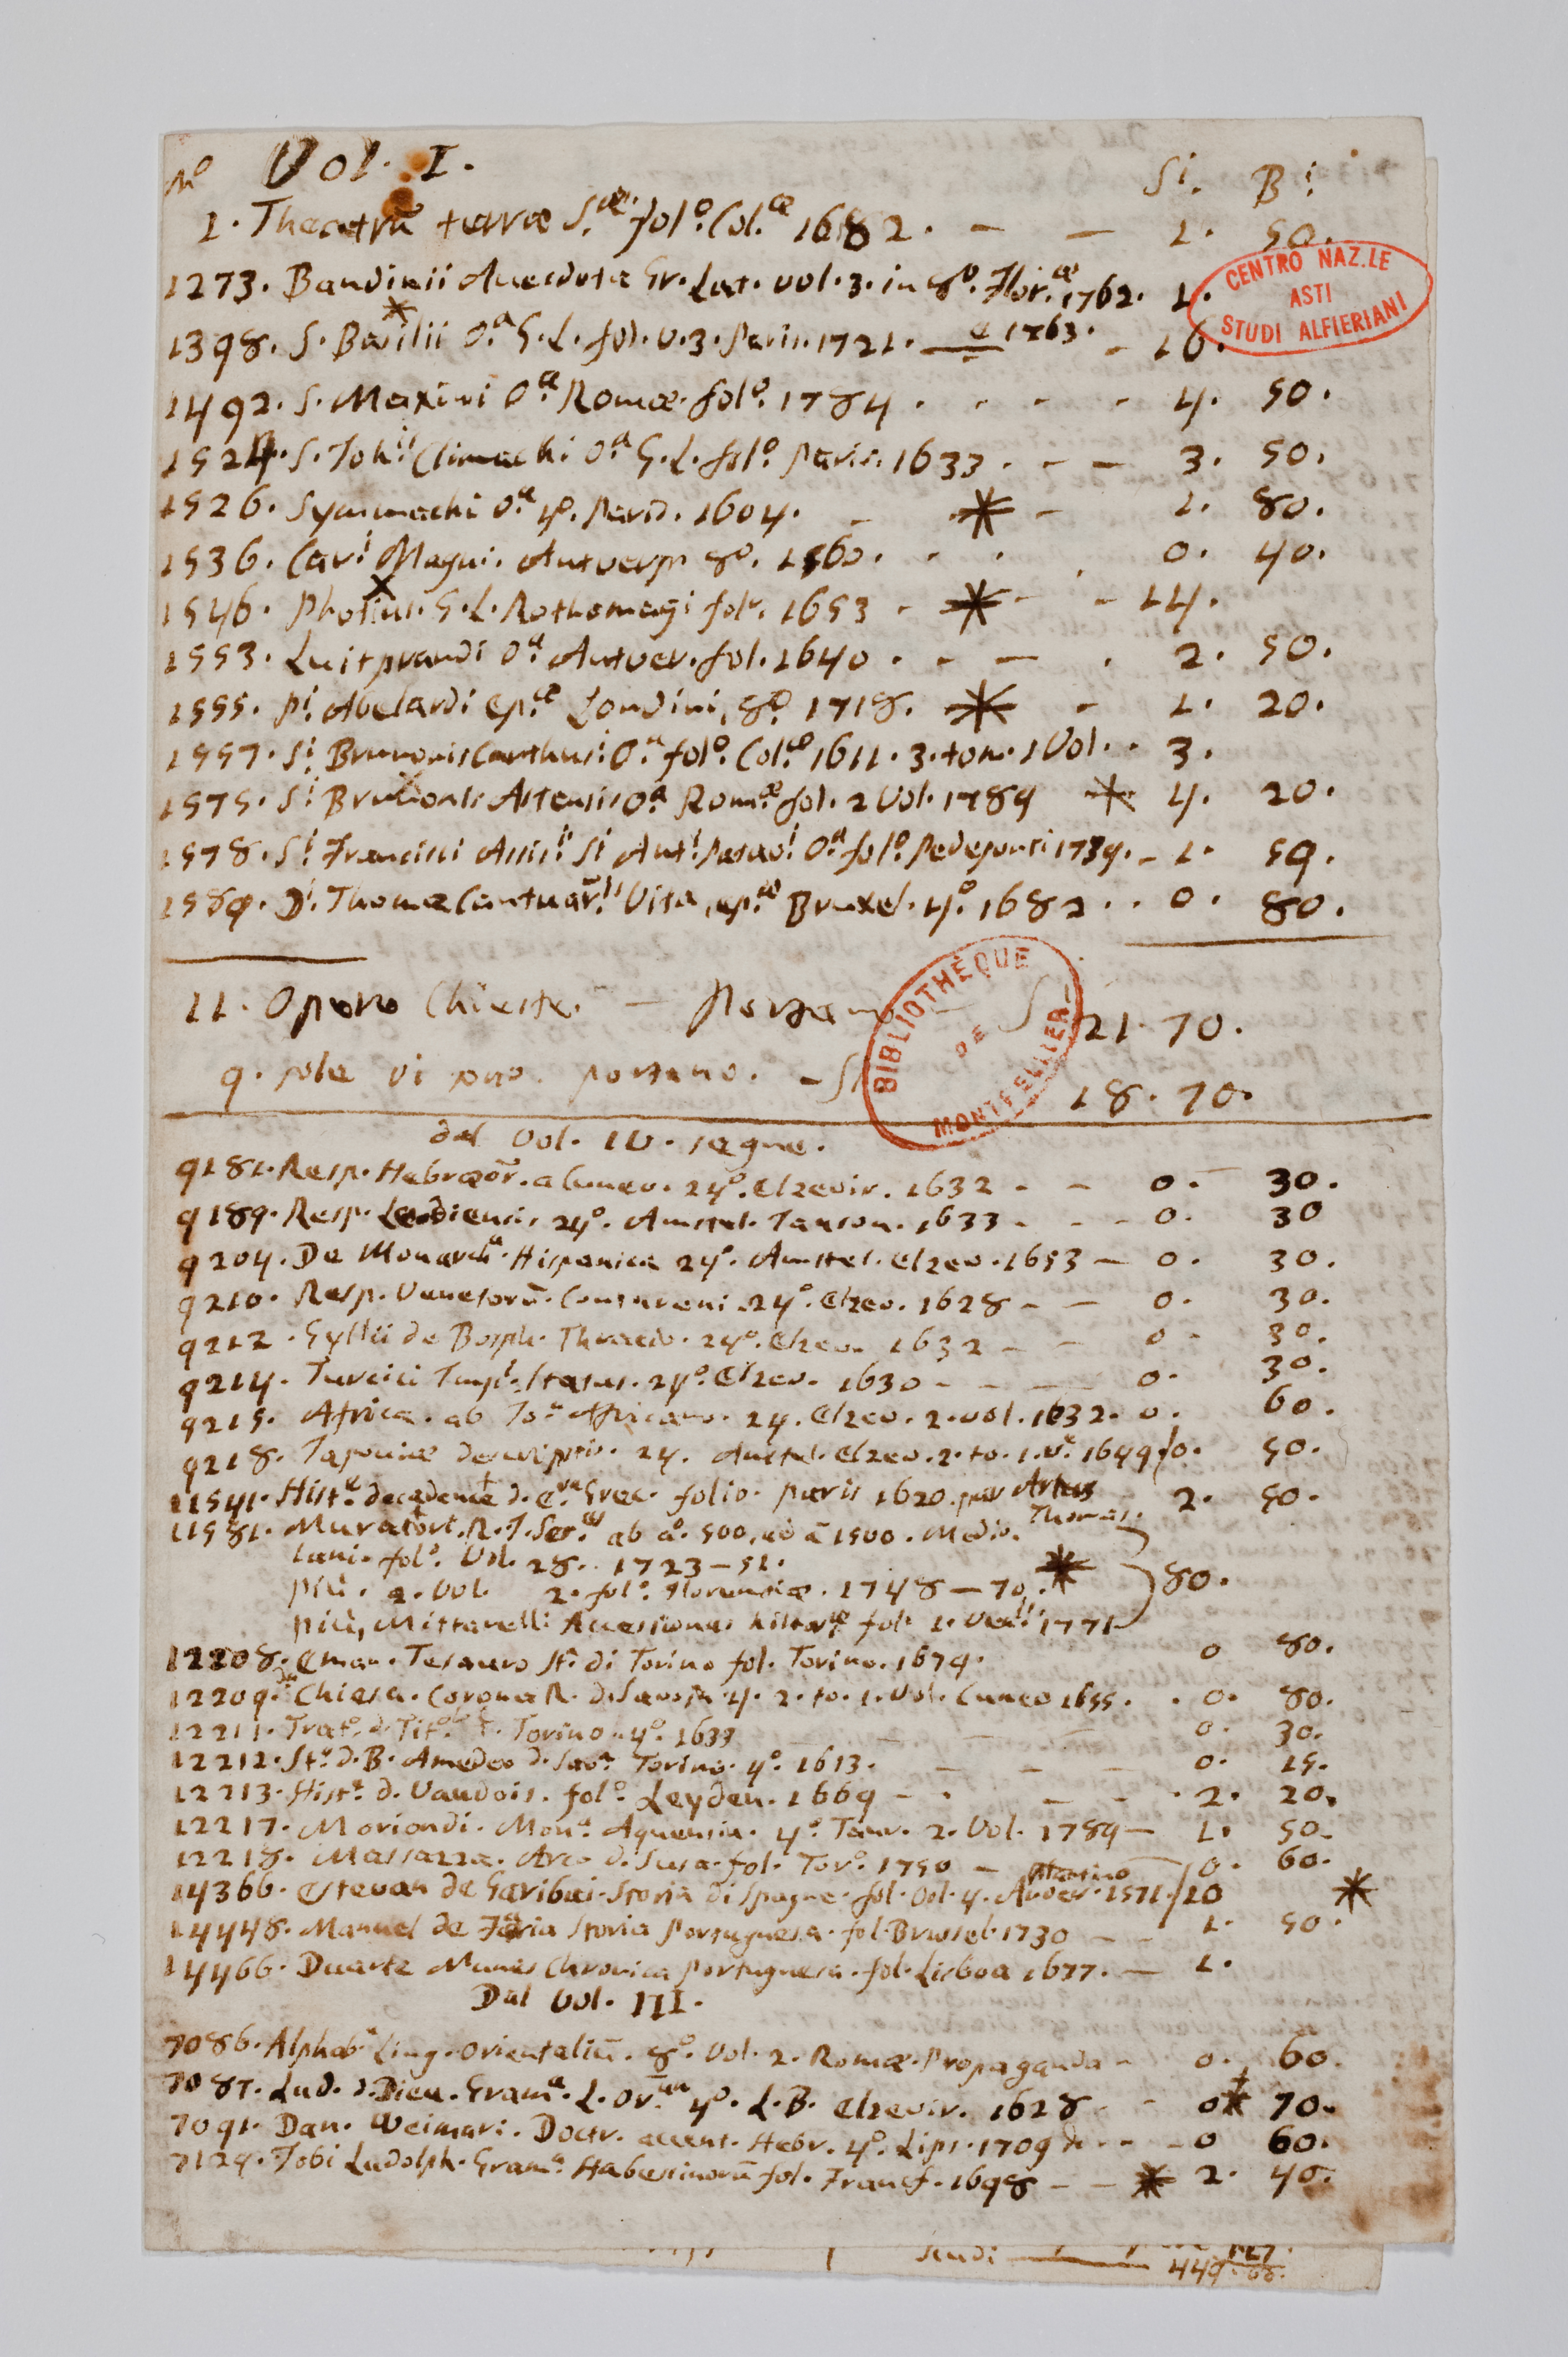 No Vol. I. Si. Bi.
1. Theatrũ terræ Sæ. folo. Colæ 1682. — — 1. 50.
1273. Bandinii Anecdota Gr. Lat. vol. 3. in 8o. Floræ 1762. 1.
1398. S. Basilii Oa. G. L. fol. v. 3. Paris. 1721. — e 1763. - 16.
1492. S. Maximi Oa. Romæ. folo. 1784. . - - - 4. 50.
1524. S. Johii. Climachi Oa G. L. folo. Paris. 1633. - — 3. 50.
1526. Symmachi Oa. 4o. Paris. 1604. - * - 1. 80.
1536. Cari. Magni. Antverp. 8o. 1560. . . . 0. 40.
1546. Photius. G. L. Rothomagi folo. 1653 - * - - 14.
1553. Luitprandi Oa. Antver. fol. 1640. - — . 2. 50.
1555. Pi. Abelardi epæ. Londini, 8o. 1718. * - 1. 20.
1557. Si. Brunonis Carthusi. Oa. folo. Colæ. 1611. 3. tom. 1 Vol. . 3.
1575. Si. Brunonis Astensis Oa Romæ. fol. 2 Vol. 1789 * 4. 20.
1578. Si. Francisci Assisii. Si Anti. Patavi. Oa. folo. Pedeponti 1739. - 1. 50.
1589. Di. Thomæ Cantuarii. Vita, epæ. Bruxel. 4o. 1682. . 0. 80.
11. Opere Chieste. — Portano — S 21. 70.
9. sole vi sono. portano. - S 18. 70.
CENTRO NAZ.LE
ASTI
STUDI ALFIERIANI
BIBLIOTHÈQUE
DE
MONTPELLIER
del Vol. IV. segue.
9181. Resp. Hebræor. a Cuneo. 24o. Elzevir. 1632 - - 0. 30.
9189. Resp. Leodiensis, 24o. Amstel. Janson. 1633. - - 0. 30
9204. De Monarchia. Hispanica 24o. Amstel. Elzev. 1653 — 0. 30.
9210. Resp. Venetorũ. Contareni. 24o. Elzev. 1628 - — 0. 30.
9212. Gyllii de Bosph. Thracio. 24o. Elzev. 1632 — — 0 - 30.
9214. Turcici Impi. Status. 24o. Elzev. 1630 - - — 0. 30.
9215. Africa. ab Joe Africano. 24. Elzev. 2. vol. 1632. 0. 60.
9218. Japoniæ descriptio. 24. Amstel. Elzev. 2. to. 1. v. 1649 0. 50.
11541. Hista. decadence d. Grec. folio. Paris 1620. par Artus Thomas. 2. 50.
11581. Muratori. R. I. Scræ ab ao. 500, ad a 1500. Medio-
lani. folo. Vol. 28. 1723-51.
più. a. Vol. 2. folo. Florentiæ. 1748-70, * 80.
più, Mittarelli Accessiones histoæ folo 1. Venii. 1771
12208. Eman. Tesauro Sta. di Torino fol. Torino. 1679. 0 80.
12209. Chiesa. Corona R. di Savoia 4. 2. to. 1. Vol. Cuneo 1655. . 0. 80.
12211. Trato. d. Tito. Torino. 4o. 1633 0. 30.
12212. Sta. d. B. Amedeo d. Sava. Torino. 4o. 1613. - - 0. 15.
12213. Hista. d. Vaudois. folo. Leyden. 1669 - . - - 2. 20.
12217. Moriondi. Mona. Aquensia. 4o. Taur. 2. Vol. 1789 — 1. 50.
12218. Massazza. Arco d. Susa. fol. Toro. 1750 — 0. 60.
14366. Estevan de Garibai. Storia di Spagna. fol. Vol. 4. Anver. Plantino 1571. 10 *
14448. Manuel de Faria Storia Portuguesa. fol. Brussel. 1730 — - 1. 50.
14466. Duarte Nunes Chronica Portuguesa. fol. Lisboa 1677. — 1.
Dal Vol. III.
7086. Alphaba. Ling. Orientaliũ. 8o. Vol. 2. Romæ. Propaganda - 0. 60.
7087. Lud. d. Dieu. Grama. L. Oran. 4o. L. B. Elzevir. 1628 - - 0 * 70.
7091. Dan. Weimari. Doctr. accent. Hebr. 4o. Lips. 1709 - - 0 60.
7129. Jobi Ludolph. Grama. Habessinorũ fol. Francf. 1698 — - * 2. 40.
scudi — 449.